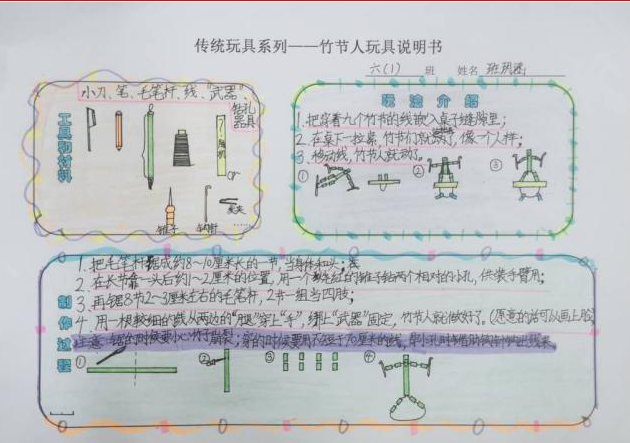 传统玩具系列——竹节人玩具说明书
六(1) 班 姓名
工具和材料
小刀、笔、毛笔杆、线、"武器"
钻孔器具
or
锥子
玩法介绍
1.把穿着九个竹节的线嵌入桌子缝隙里；
2.在桌下一拉紧，竹节们就站了，像一个人样；
3.移动线，竹节人就动了。
① ② ③
制作过程
1.把毛笔杆锯成约8~10厘米长的一节，当身体和头；
2.在长节靠一头后约1~2厘米的位置，用一个的锥子钻两个相对的小孔，供装手臂用；
3.再锯8节2~3厘米左右的毛笔杆，2节一组当四肢；
4.用一根较细的线从两边的"腿"穿上"手"，绑上"武器"固定，竹节人就做好了。(愿意的话可以画上脸)
注意：锯的时候要小心竹子崩裂，穿的时候要用不短于70厘米的线。
① ② ③ ④